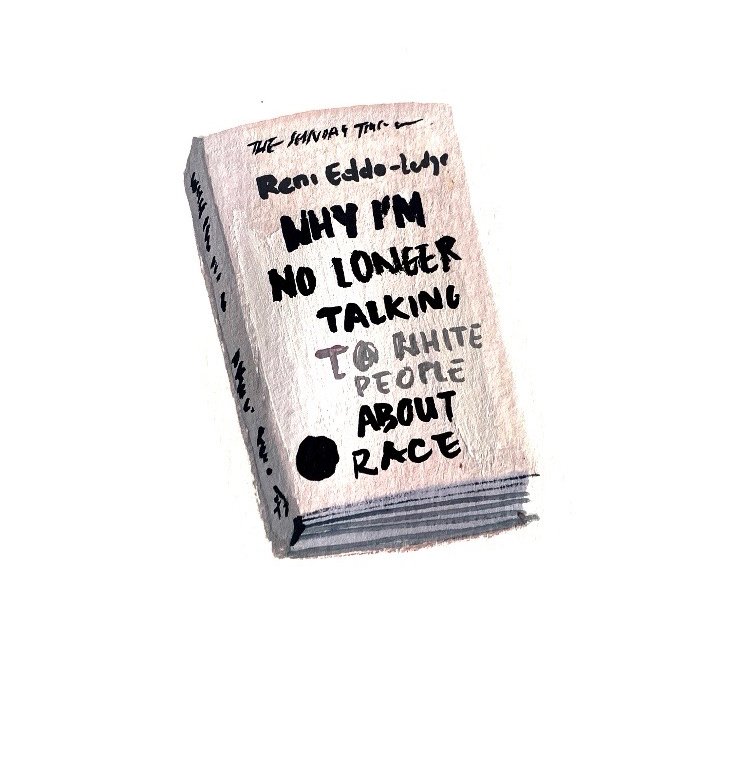 THE SUNDAY
Reni Eddo-Lodge
WHY I'M
NO LONGER
TALKING
TO WHITE
PEOPLE
ABOUT
RACE